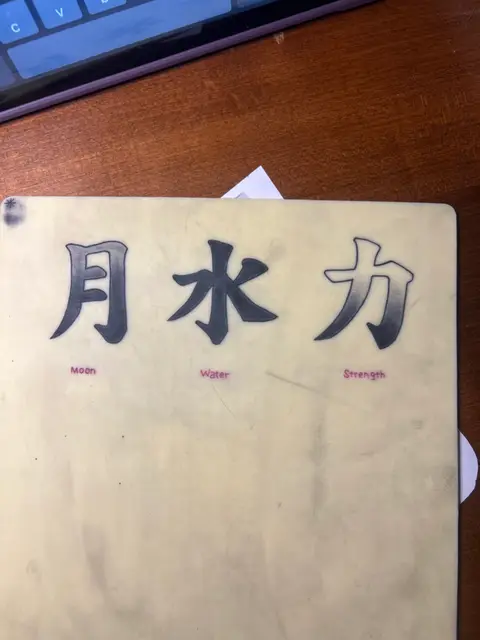 C V
月 水 力
Moon Water Strength